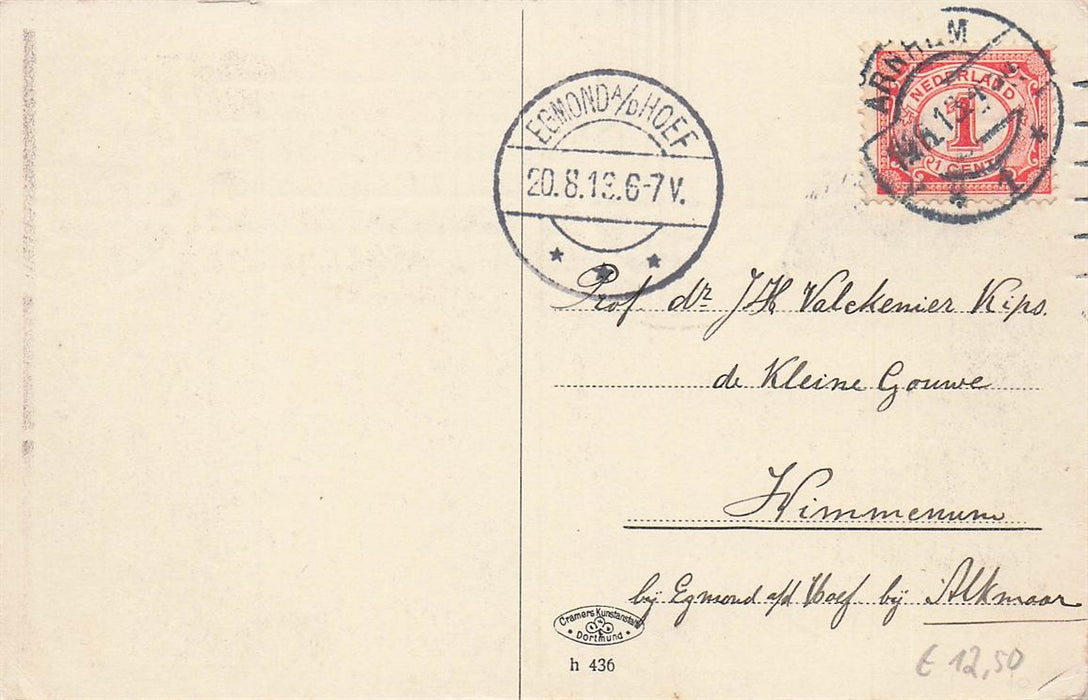 EGMOND A/D HOEF
20.8.13.6-7V.
ARNHEM
NEDERLAND
1
1 CENT
Prof. dr. J H Valckenier Kips.
de Kleine Gouwe
Wimmenum
bij Egmond a/d Hoef bij Alkmaar
Cramers Kunstanstalt
Dortmund
h 436
€ 12,50